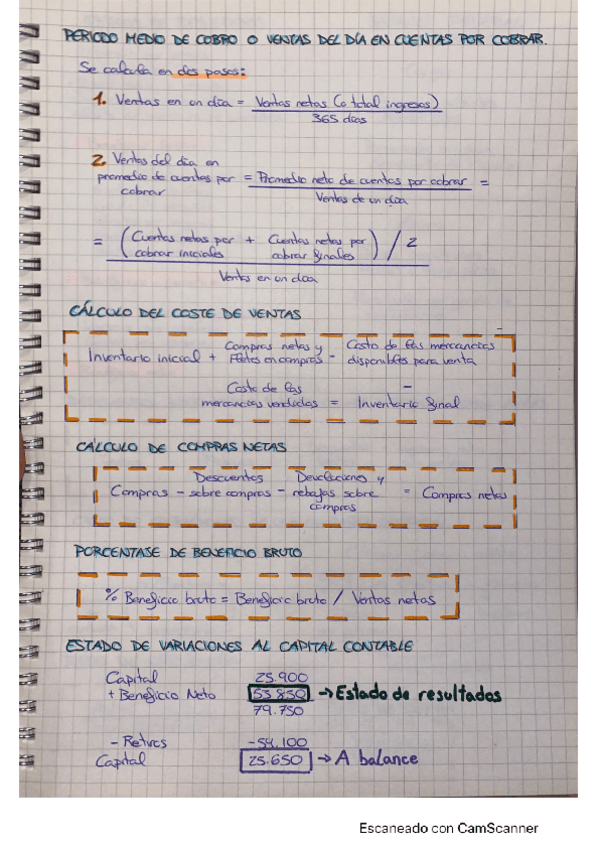 PERIODO MEDIO DE COBRO O VENTAS DEL DÍA EN CUENTAS POR COBRAR.
Se calcula en dos pasos:
1. Ventas en un día = Ventas netas (o total ingresos)
365 días
2. Ventas del día en
promedio de cuentas por = Promedio neto de cuentas por cobrar =
cobrar Ventas de un día
= (Cuentas netas por + Cuentas netas por) / 2
cobrar iniciales cobrar finales
Ventas en un día
CÁLCULO DEL COSTE DE VENTAS
Compras netas y Costo de las mercancías
Inventario inicial + Fletes en compras - disponibles para venta
Costo de las -
mercancías vendidas = Inventario final
CÁLCULO DE COMPRAS NETAS
Descuentos Devoluciones y
Compras - sobre compras - rebajas sobre = Compras netas
compras
PORCENTASE DE BENEFICIO BRUTO
% Beneficio bruto = Beneficio bruto / Ventas netas
ESTADO DE VARIACIONES AL CAPITAL CONTABLE
Capital 25.900
+ Beneficio Neto 53.850 → Estado de resultados
79.750
- Retiros -54.100
Capital 25.650 → A balance
Escaneado con CamScanner